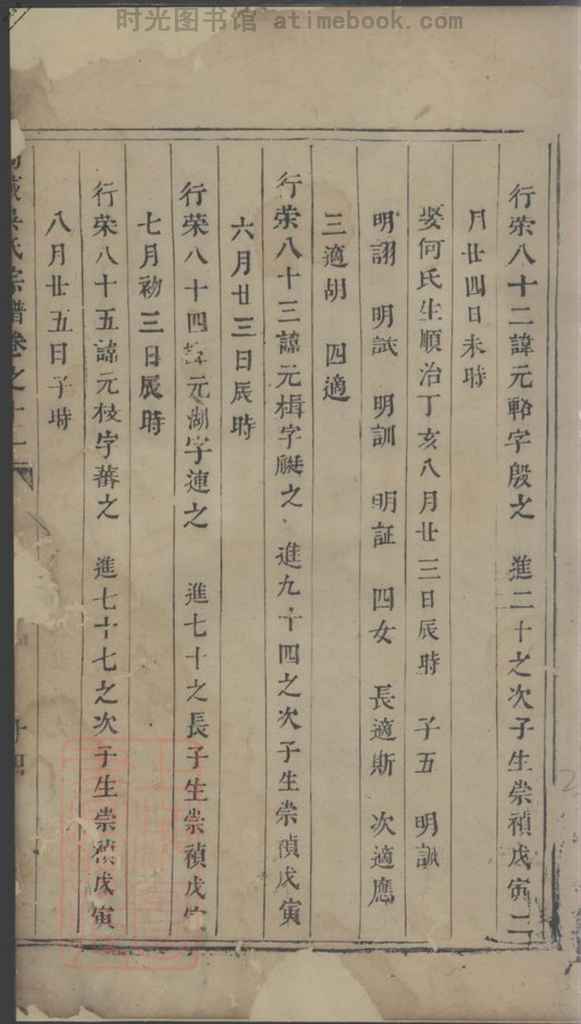 时光图书馆 atimebook.com
行荣八十二諱元輅字殷之 進二十之次子生崇禎戊寅二
月廿四日未時
娶何氏生順治丁亥八月廿三日辰時 子五 明訓
明詡 明試 明訓 明証 四女 長適斯 次適應
三適胡 四適
行荣八十三諱元楫字艇之 進九十四之次子生崇禎戊寅
六月廿三日辰時
行荣八十四 元湖字連之 進七十之長子生崇禎戊
七月初三日辰時
行荣八十五諱元枝字蕃之 進七十七之次子生崇禎戊寅
八月廿五日子時
氏宗譜卷之十二